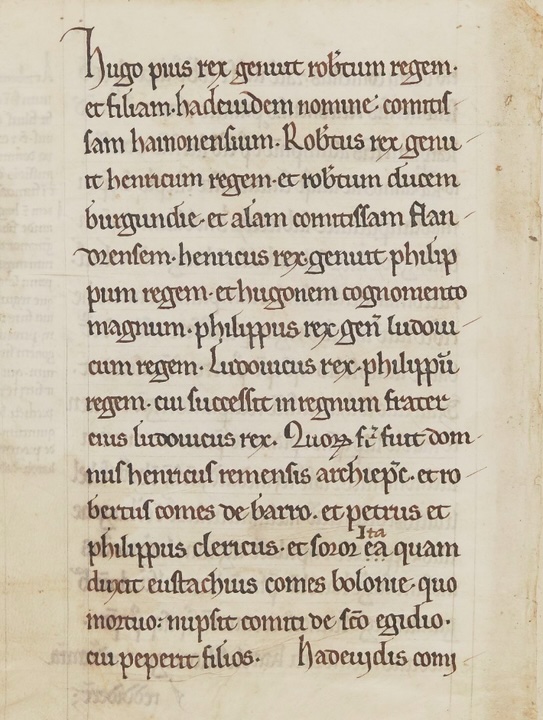 Hugo pius rex genuit rob̅tum regem·
et filiam·hadeuidem nomine· comitis-
sam hainonensium· Rob̅tus rex genu-
it henricum regem·et rob̅tum ducem
burgundie·et alam comitissam flan-
drensem·henricus rex genuit philip
pum regem·et hugonem cognomento
magnum·philippus rex gen̅ ludoui-
cum regem· Ludouicus rex·philippu̅
regem·cui successit in regnum frater
eius ludouicus rex. Quoꝝ fr̅ fuit dom-
nus henricus remensis archiep̅c·et ro-
bertus comes de barro·et petrus et
philippus clericus·et soror ea quam
Ita
duxit eustachius comes bolonie·quo
mortuo: nupsit comiti de sc̅o egidio·
cui peperit filios· Hadeuidis comi-